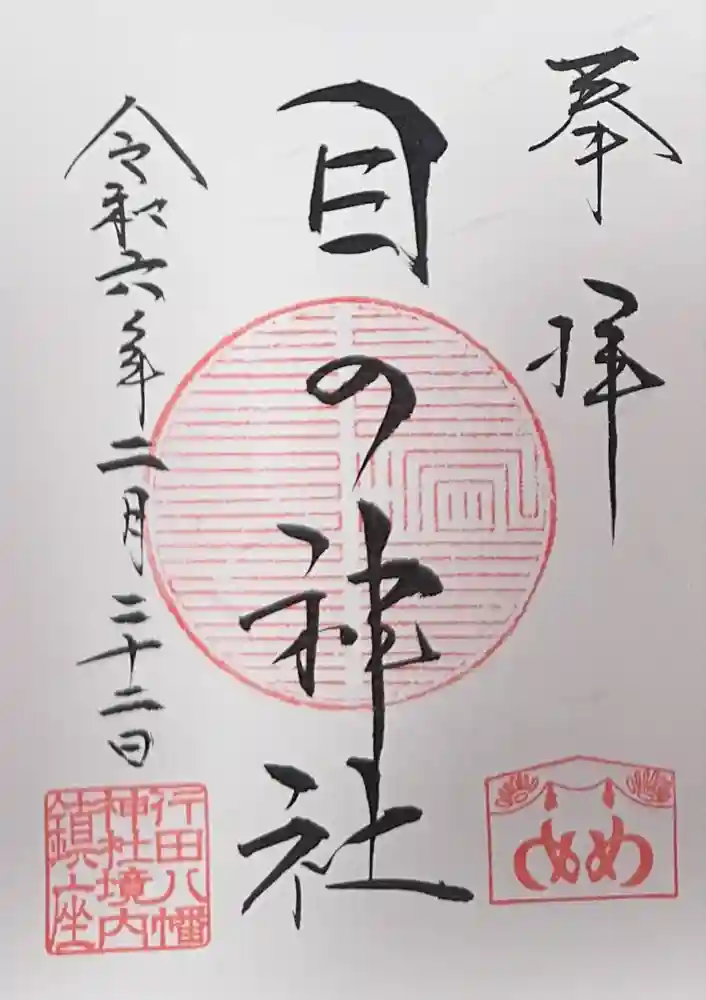 奉拝
目の神社
令和六年二月二十二日
行田八幡
神社境内
鎮座
めめ